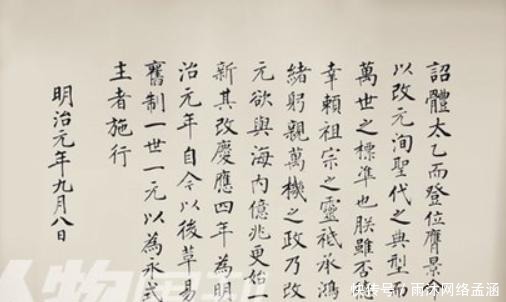 詔體太乙而登位膺景
以改元洵聖代之典型而
萬世之標準也朕雖否
幸賴祖宗之靈祗承鴻
緒躬親萬機之政乃改
元欲與海內億兆更始一
新其改慶應四年為明
治元年自今以後革易
舊制一世一元以為永式
主者施行
明治元年九月八日
人物周刊
快传号/雨沐网络孟涵